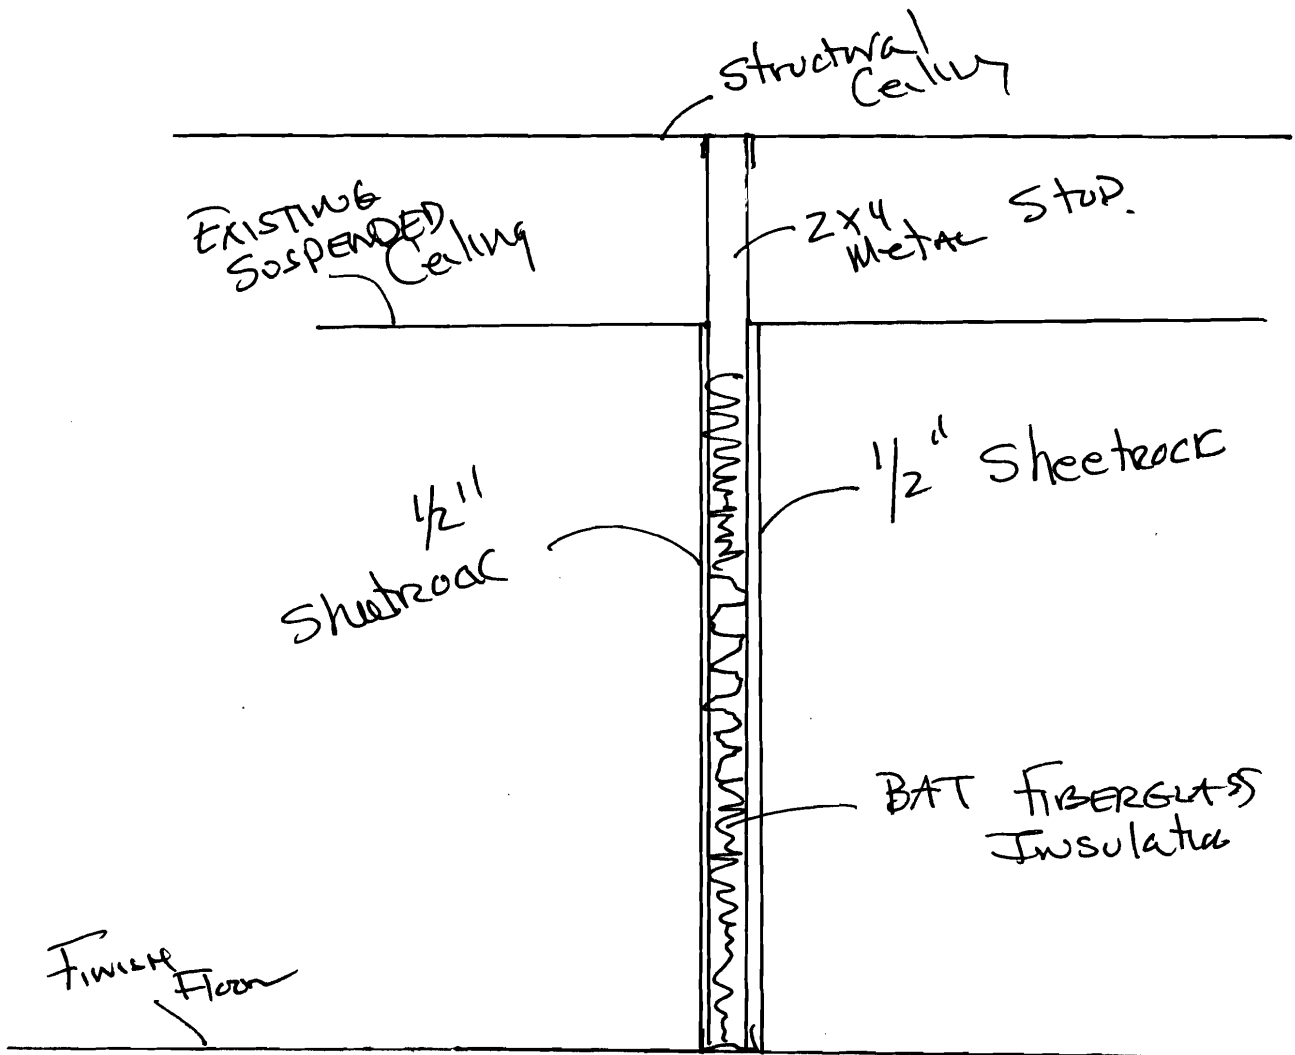 Structural
Ceiling
EXISTING
SOSPENDED
Ceiling
2x4 STUD.
METAL
1/2" Sheetrock
1/2"
Sheetrock
BAT FIBERGLASS
Insulation
Finish
Floor